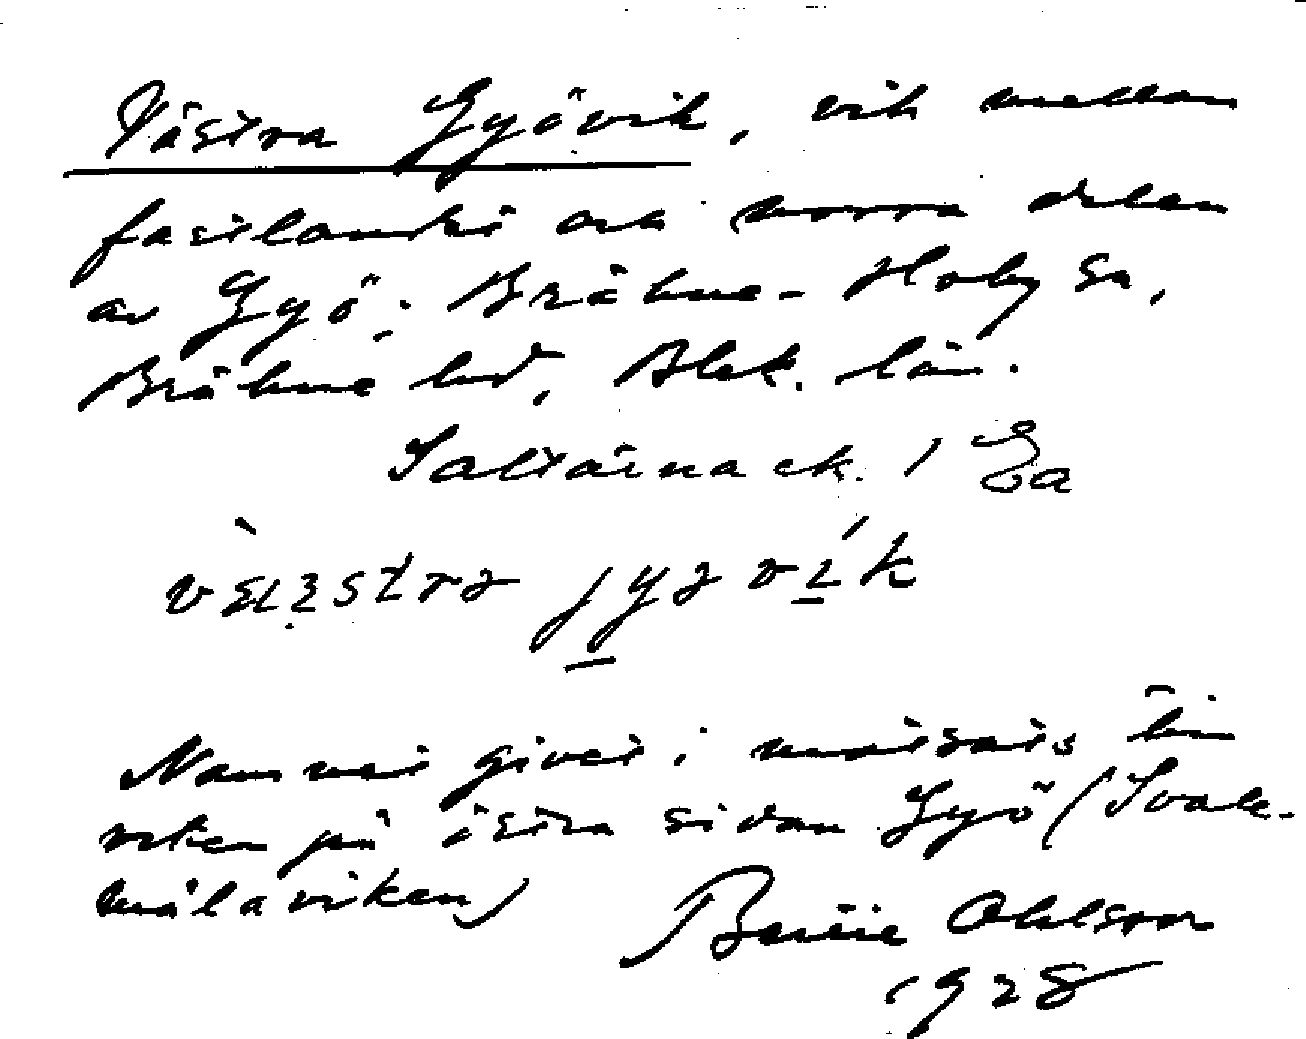 Västra Gyövik, vik mellan
fastlandet och norra delen
av Gyö; Bräkne-Hoby sn,
Bräkne hd, Blek. län.
Saltärna ek. 1 Ea
jyəvik
Namnet givet i motsats till
viken på östra sidan Gyö (Svale-
målaviken)
Bertie Ohlson
1928